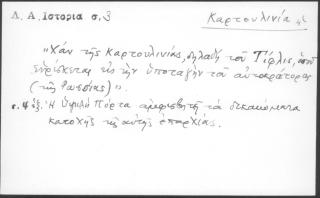 Δ. Α. Ιστορία σ. 3
Καρτουλινία
"Χάν τῆς Καρτουλινίας, δηλαδή τοῦ Τίφλις, ὁποῦ
εὑρίσκεται εἰς τήν ὑποταγήν τοῦ αὐτοκράτορος
(τῆς Ρωσσίας)".
Ἡ Ὑψηλή Πόρτα ἀμφισβητῇ τά δικαιώματα
κατοχῆς τῆς αὐτῆς ἐπαρχίας.